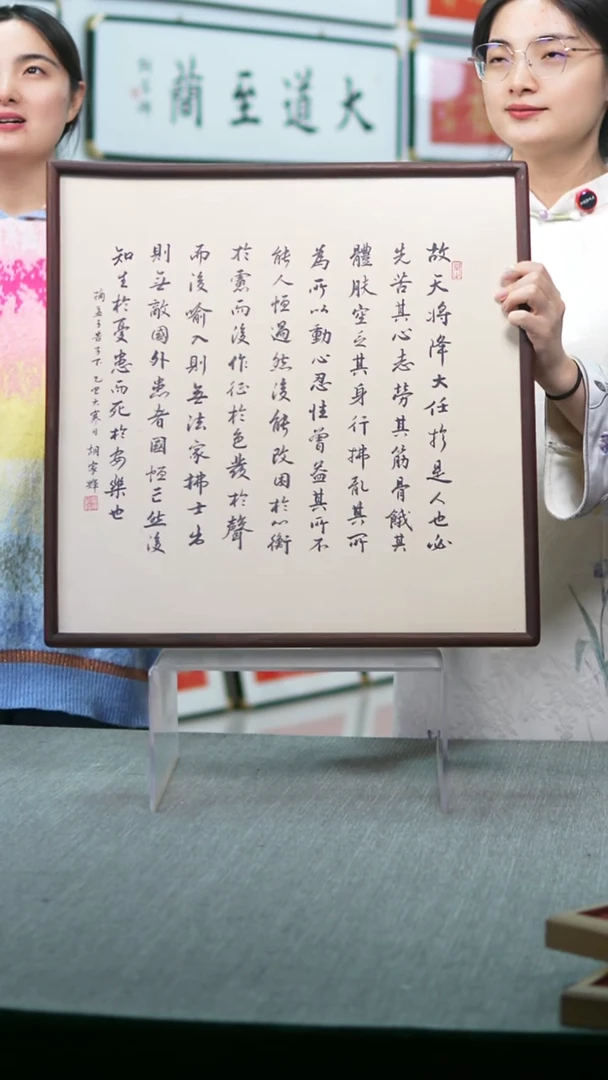 大道至簡
故天将降大任於是人也必
先苦其心志勞其筋骨餓其
體肤空乏其身行拂乱其所
為所以動心忍性曾益其所不
能人恒過然後能改困於心衡
於慮而後作征於色發於聲
而後喻入則無法家拂士出
則無敵國外患者國恒亡然後
知生於憂患而死於安樂也
摘孟子告子下 乙巳大寒日 胡家輝